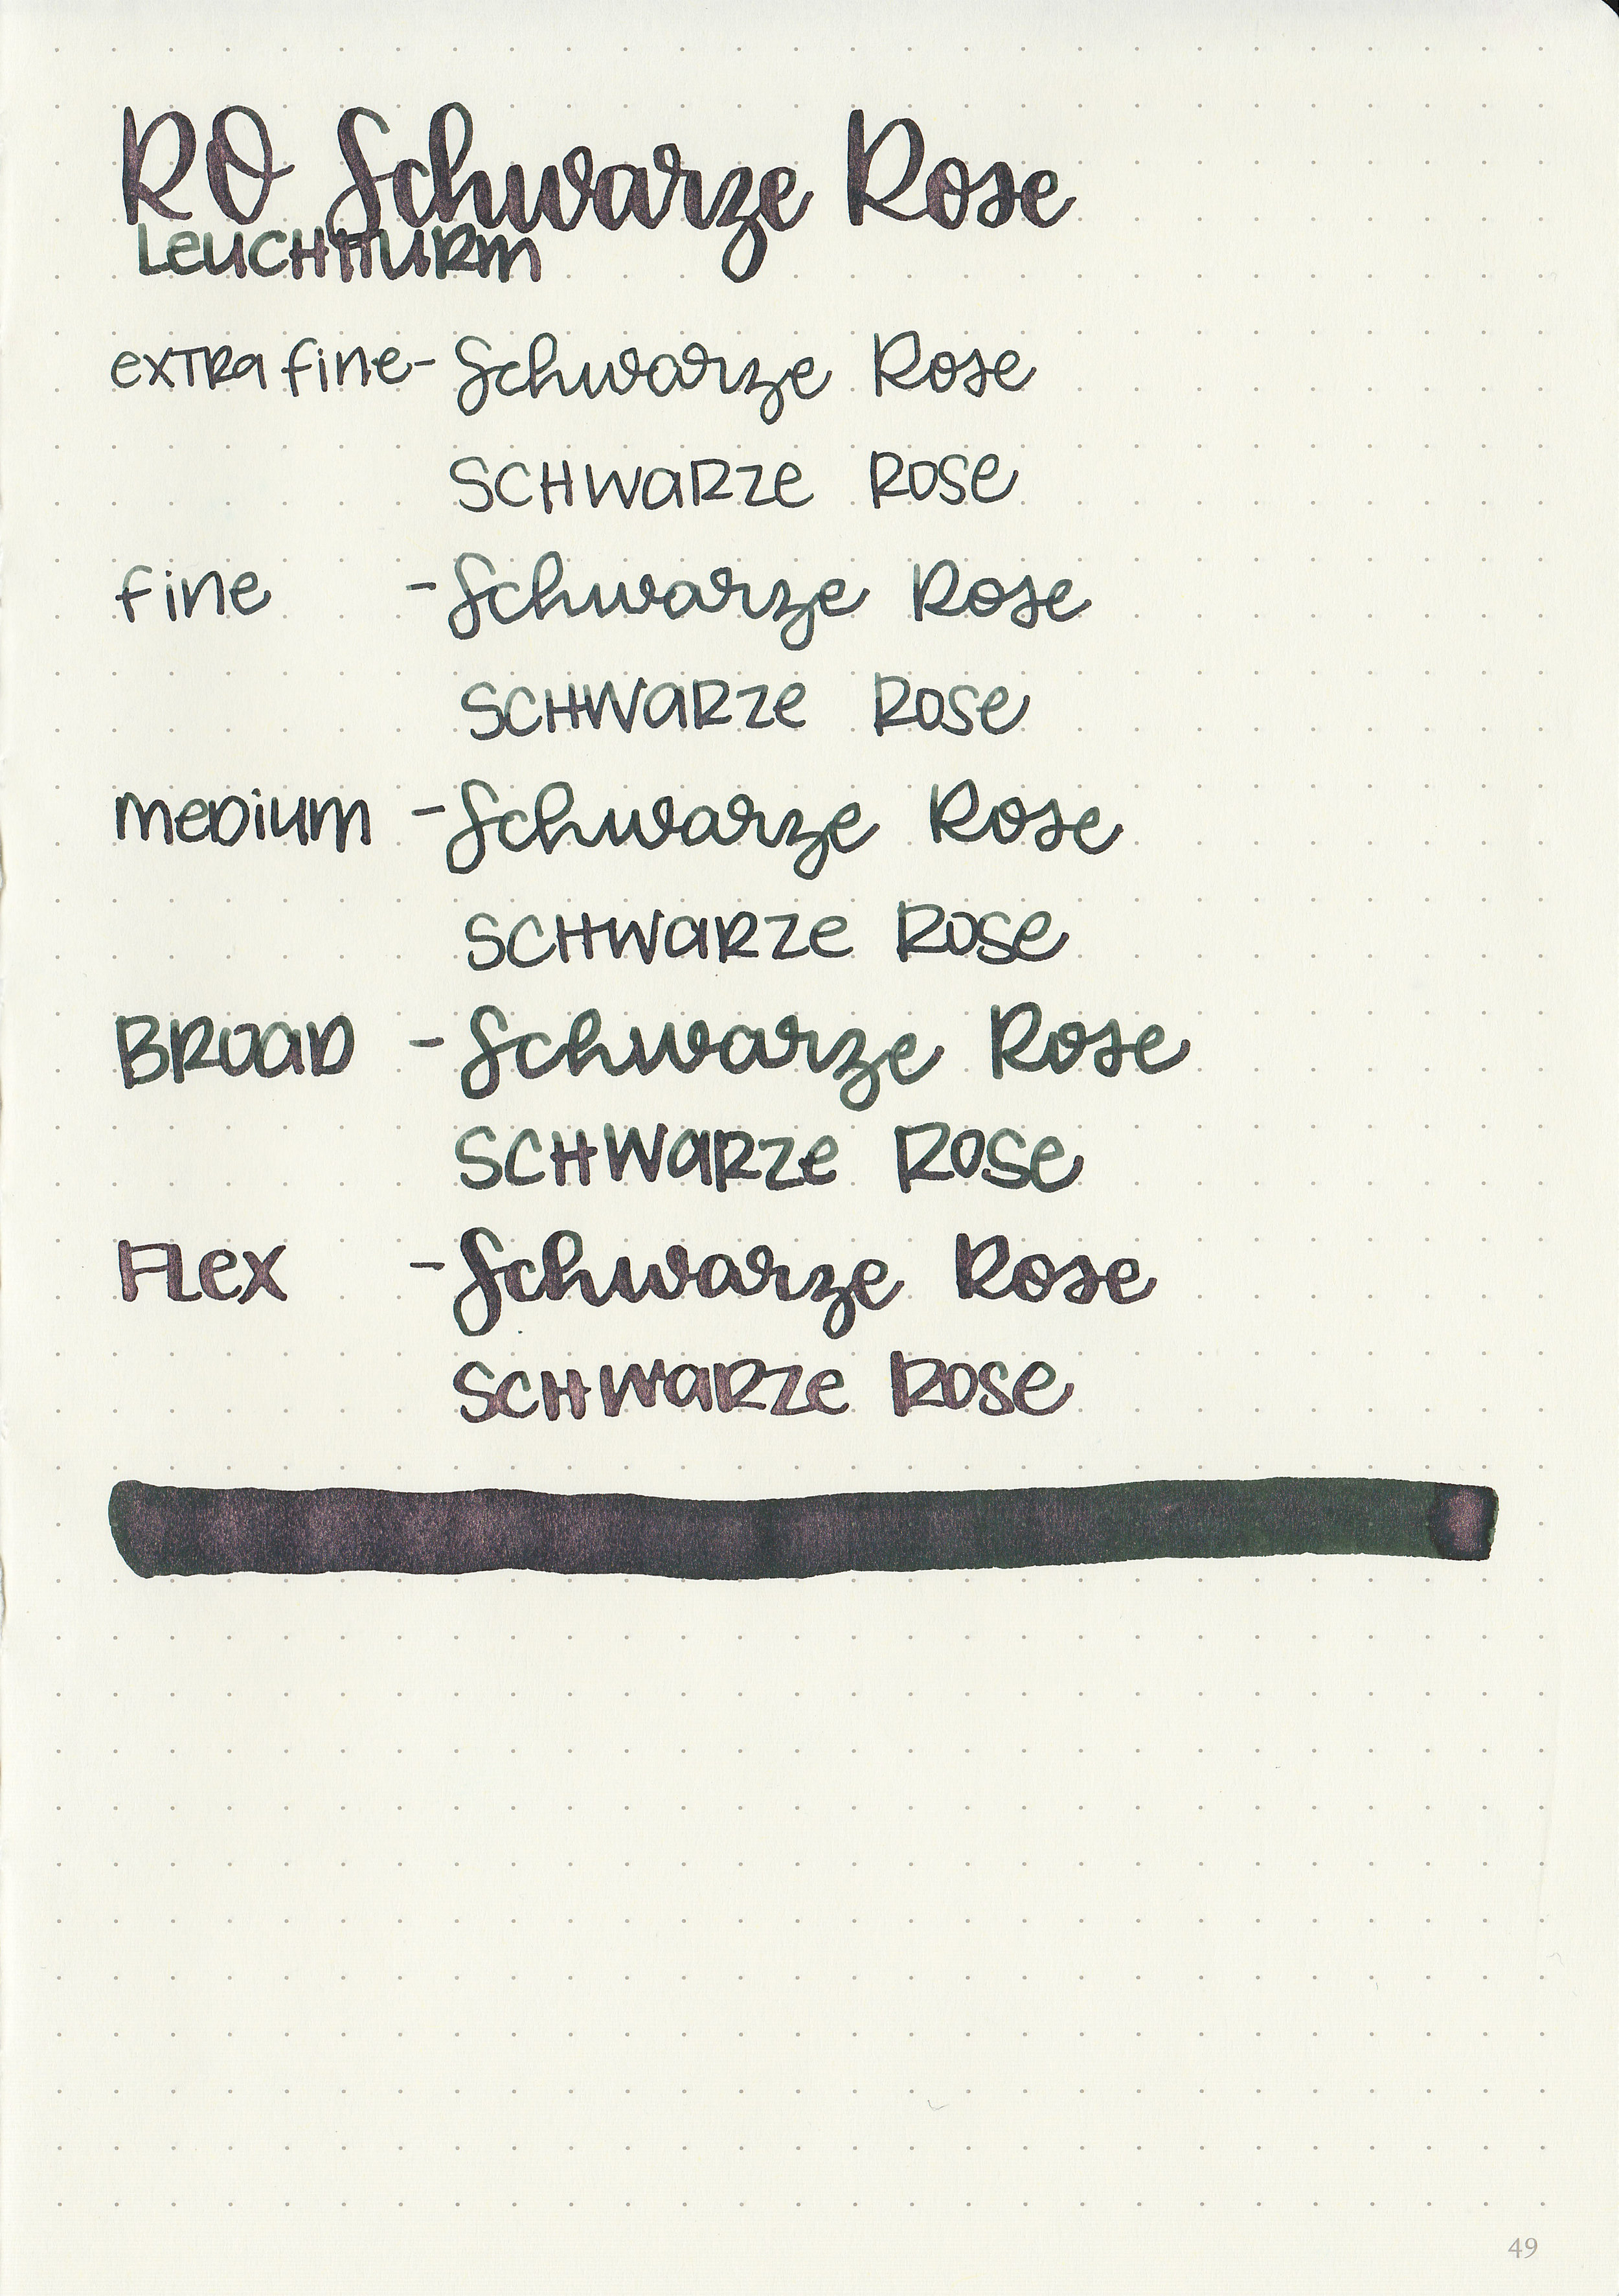 RO Schwarze Rose
LEUCHTTURM
extra fine - Schwarze Rose
SCHWARZE ROSE
fine - Schwarze Rose
SCHWARZE ROSE
medium - Schwarze Rose
SCHWARZE ROSE
BROAD - Schwarze Rose
SCHWARZE ROSE
FLEX - Schwarze Rose
SCHWARZE ROSE
49